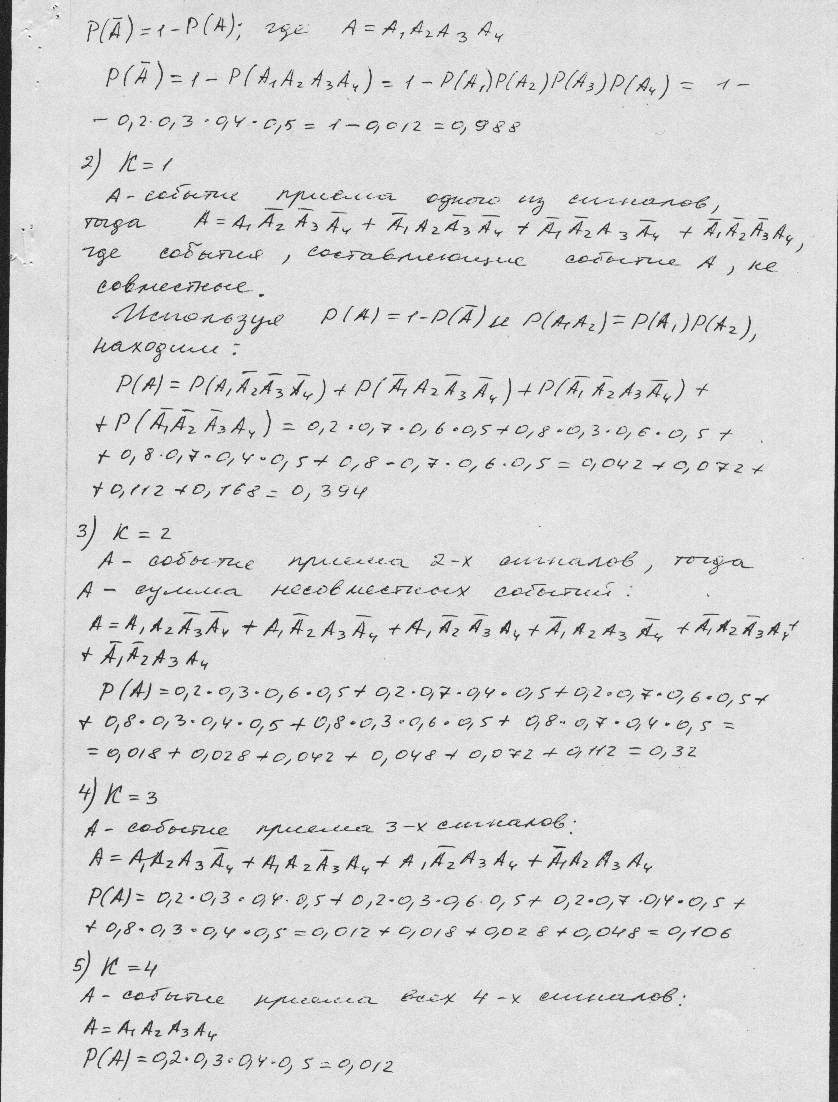 P(Ā) = 1 - P(A); где A = A₁A₂A₃A₄
P(Ā) = 1 - P(A₁A₂A₃A₄) = 1 - P(A₁)P(A₂)P(A₃)P(A₄) = 1 -
- 0,2·0,3·0,4·0,5 = 1 - 0,012 = 0,988
2) K = 1
A - событие приема одного из сигналов,
тогда A = A₁Ā₂Ā₃Ā₄ + Ā₁A₂Ā₃Ā₄ + Ā₁Ā₂A₃Ā₄ + Ā₁Ā₂Ā₃A₄,
где события, составляющие событие A, не
совместные.
Используя P(A) = 1 - P(Ā) и P(A₁A₂) = P(A₁)P(A₂),
находим:
P(A) = P(A₁Ā₂Ā₃Ā₄) + P(Ā₁A₂Ā₃Ā₄) + P(Ā₁Ā₂A₃Ā₄) +
+ P(Ā₁Ā₂Ā₃A₄) = 0,2·0,7·0,6·0,5 + 0,8·0,3·0,6·0,5 +
+ 0,8·0,7·0,4·0,5 + 0,8·0,7·0,6·0,5 = 0,042 + 0,072 +
+ 0,112 + 0,168 = 0,394
3) K = 2
A - событие приема 2-х сигналов, тогда
A - сумма несовместных событий:
A = A₁A₂Ā₃Ā₄ + A₁Ā₂A₃Ā₄ + A₁Ā₂Ā₃A₄ + Ā₁A₂A₃Ā₄ + Ā₁A₂Ā₃A₄ +
+ Ā₁Ā₂A₃A₄
P(A) = 0,2·0,3·0,6·0,5 + 0,2·0,7·0,4·0,5 + 0,2·0,7·0,6·0,5 +
+ 0,8·0,3·0,4·0,5 + 0,8·0,3·0,6·0,5 + 0,8·0,7·0,4·0,5 =
= 0,018 + 0,028 + 0,042 + 0,048 + 0,072 + 0,112 = 0,32
4) K = 3
A - событие приема 3-х сигналов:
A = A₁A₂A₃Ā₄ + A₁A₂Ā₃A₄ + A₁Ā₂A₃A₄ + Ā₁A₂A₃A₄
P(A) = 0,2·0,3·0,4·0,5 + 0,2·0,3·0,6·0,5 + 0,2·0,7·0,4·0,5 +
+ 0,8·0,3·0,4·0,5 = 0,012 + 0,018 + 0,028 + 0,048 = 0,106
5) K = 4
A - событие приема всех 4-х сигналов:
A = A₁A₂A₃A₄
P(A) = 0,2·0,3·0,4·0,5 = 0,012